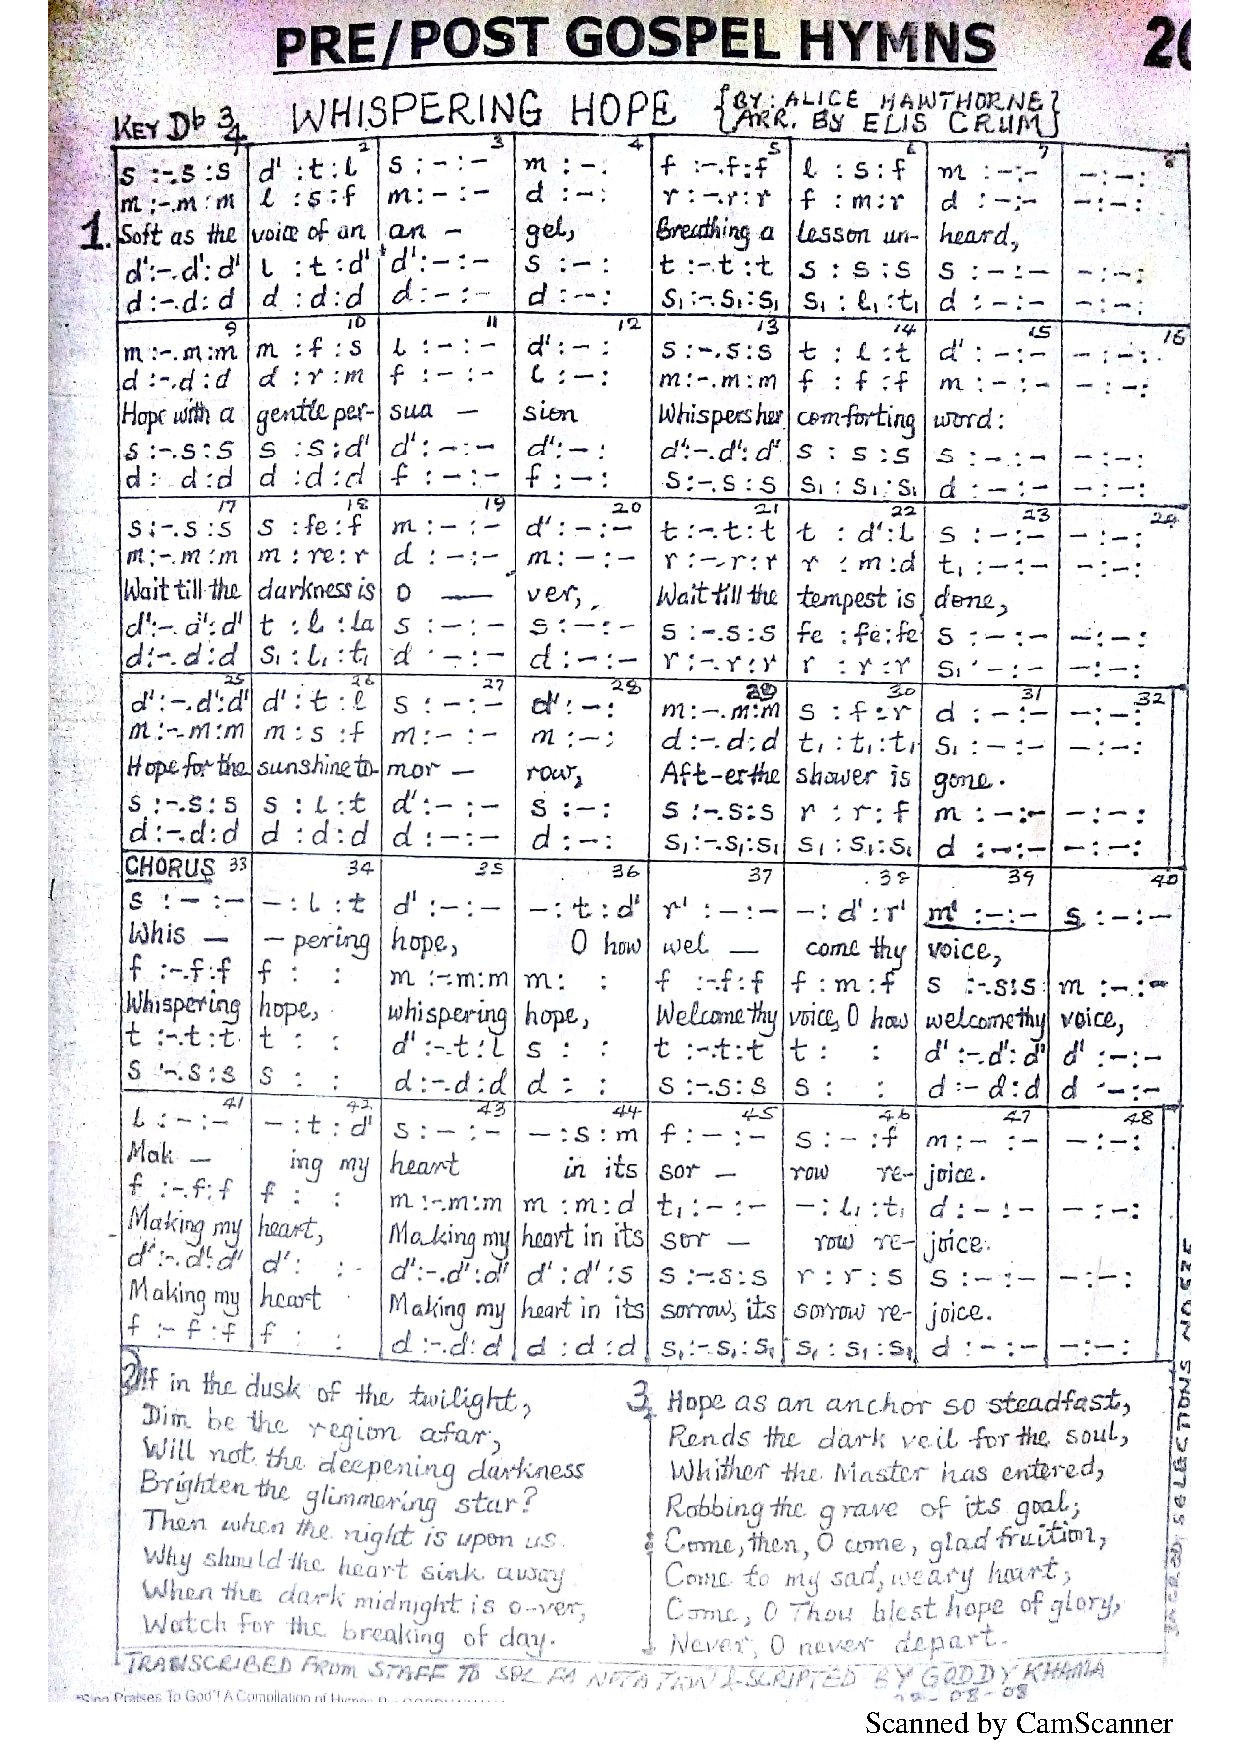 PRE/POST GOSPEL HYMNS 20
KEY Db 3/4 WHISPERING HOPE {BY: ALICE HAWTHORNE}
{ARR. BY ELIS CRUM}
1 2 3 4 5 6 7 8
s :-.s :s | d' : t : l | s : - : - | m : - : | f :-.f:f | l : s : f | m : - : - | - : - :
m :-.m :m | l : s : f | m : - : - | d : - : | r :-.r:r | f : m : r | d : - : - | - : - :
1. Soft as the | voice of an | an - | gel, | Breathing a | lesson un- | heard,
d':-.d':d' | l : t : d' | d' : - : - | s : - : | t :-.t:t | s : s : s | s : - : - | - : - :
d :-.d :d | d : d : d | d : - : - | d : - : | s₁:-.s₁:s₁ | s₁ : l₁ : t₁ | d : - : - | - : - :
9 10 11 12 13 14 15 16
m :-.m :m | m : f : s | l : - : - | d' : - : | s :-.s :s | t : l : t | d' : - : - | - : - :
d :-.d :d | d : r : m | f : - : - | l : - : | m :-.m :m | f : f : f | m : - : - | - : - :
Hope with a | gentle per- | sua - | sion | Whispers her | comforting | word:
s :-.s :s | s : s : d' | d' : - : - | d' : - : | d':-.d':d' | s : s : s | s : - : - | - : - :
d : d :d | d : d : d | f : - : - | f : - : | s :-.s :s | s₁ : s₁ : s₁ | d : - : - | - : - :
17 18 19 20 21 22 23 24
s :-.s :s | s : fe : f | m : - : - | d' : - : - | t :-.t:t | t : d' : l | s : - : - | - : - :
m :-.m :m | m : re : r | d : - : - | m : - : - | r :-.r:r | r : m : d | t₁ : - : - | - : - :
Wait till the | darkness is | o — | ver, | Wait till the | tempest is | done,
d':-.d':d' | t : l : la | s : - : - | s : - : - | s :-.s :s | fe : fe : fe | s : - : - | - : - :
d :-.d :d | s₁ : l₁ : t₁ | d : - : - | d : - : - | r :-.r:r | r : r : r | s₁ : - : - | - : - :
25 26 27 28 29 30 31 32
d':-.d':d' | d' : t : l | s : - : - | d' : - : | m :-.m :m | s : f : r | d : - : - | - : - :
m :-.m :m | m : s : f | m : - : - | m : - : | d :-.d :d | t₁ : t₁ : t₁ | s₁ : - : - | - : - :
Hope for the | sunshine to- | mor - | row, | Aft-er the | shower is | gone.
s :-.s :s | s : l : t | d' : - : - | s : - : | s :-.s :s | r : r : f | m : - : - | - : - :
d :-.d :d | d : d : d | d : - : - | d : - : | s₁:-.s₁:s₁ | s₁ : s₁ : s₁ | d : - : - | - : - :
CHORUS 33 34 35 36 37 38 39 40
s : - : - | - : l : t | d' : - : - | - : t : d' | r' : - : - | - : d' : r' | m' : - : - | s : - : -
Whis - | - pering | hope, | O how | wel — | come thy | voice,
f :-.f:f | f : : | m :-.m:m | m : : | f :-.f:f | f : m : f | s :-.s:s | m : - : -
Whispering | hope, | whispering | hope, | Welcome thy | voice, O how | welcome thy | voice,
t :-.t:t | t : : | d' :-.t:l | s : : | t :-.t:t | t : : | d' :-.d':d' | d' : - : -
s :-.s:s | s : : | d :-.d:d | d : : | s :-.s:s | s : : | d :- d:d | d : - : -
41 42 43 44 45 46 47 48
l : - : - | - : t : d' | s : - : - | - : s : m | f : - : - | s : - : f | m : - : - | - : - :
Mak — | ing my | heart | in its | sor — | row re- | joice.
f :-.f:f | f : : | m :-.m:m | m : m : d | t₁ : - : - | - : l₁ : t₁ | d : - : - | - : - :
Making my | heart, | Making my | heart in its | sor — | row re- | joice.
d':-.d':d' | d' : : | d':-.d':d' | d' : d' : s | s :-.s:s | r : r : s | s : - : - | - : - :
Making my | heart | Making my | heart in its | sorrow, its | sorrow re- | joice.
f :- f:f | f : : | d :-.d:d | d : d : d | s₁:-.s₁:s₁ | s₁ : s₁ : s₁ | d : - : - | - : - :
2. If in the dusk of the twilight,
Dim be the region afar,
Will not the deepening darkness
Brighten the glimmering star?
Then when the night is upon us
Why should the heart sink away
When the dark midnight is o-ver,
Watch for the breaking of day.
3. Hope as an anchor so steadfast,
Rends the dark veil for the soul,
Whither the Master has entered,
Robbing the grave of its goal;
Come, then, O come, glad fruition,
Come to my sad, weary heart;
Come, O Thou blest hope of glory,
Never, O never depart.
SACRED SELECTIONS NO 525
TRANSCRIBED FROM STAFF TO SOL FA NOTATION & SCRIPTED BY GODDY KHAMA
-08-08
"Sing Praises To God"! A Compilation of Hymns
Scanned by CamScanner